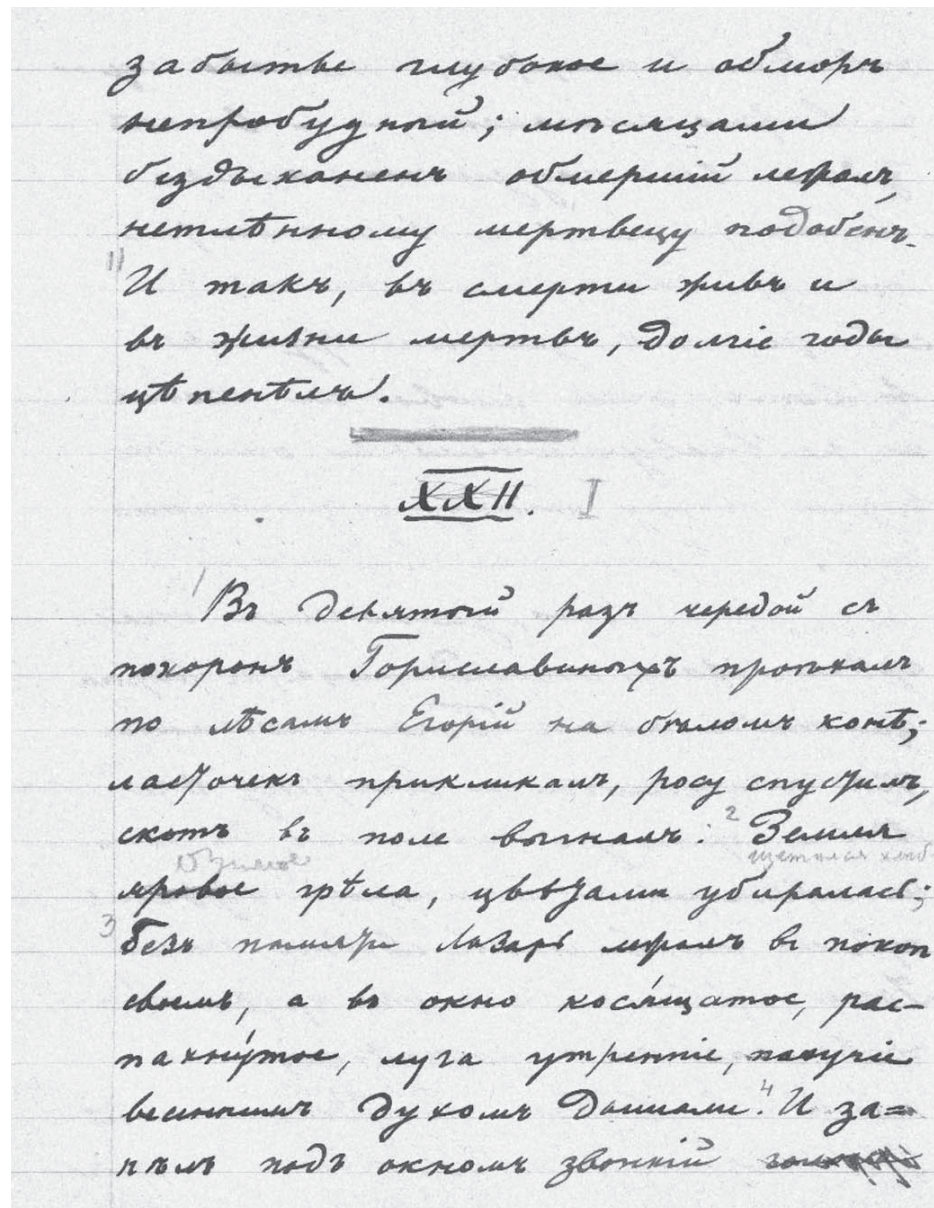 забытье глубокое и обморъ
непробудный; мѣсяцами
бездыханенъ обмершій лежалъ,
нетлѣнному мертвецу подобенъ.
11
И такъ, въ смерти живъ и
въ жизни мертвъ, долгіе годы
цѣпенѣлъ.
XXII. I
1
Въ девятый разъ чередой съ
похоронъ Гориславиныхъ проѣхалъ
по лѣсамъ Егорій на бѣломъ конѣ;
ласточекъ прикликалъ, росу спустилъ,
скотъ въ поле выгналъ. 2 Земля
яровое грѣла, цвѣтами убиралась;
3
безъ памяти Лазарь лежалъ въ покоѣ
своемъ, а въ окно косящатое, рас-
пахнутое, луга утренніе, пахучіе
весеннимъ духомъ дышали. 4 И за=
пѣлъ подъ окномъ звонкій